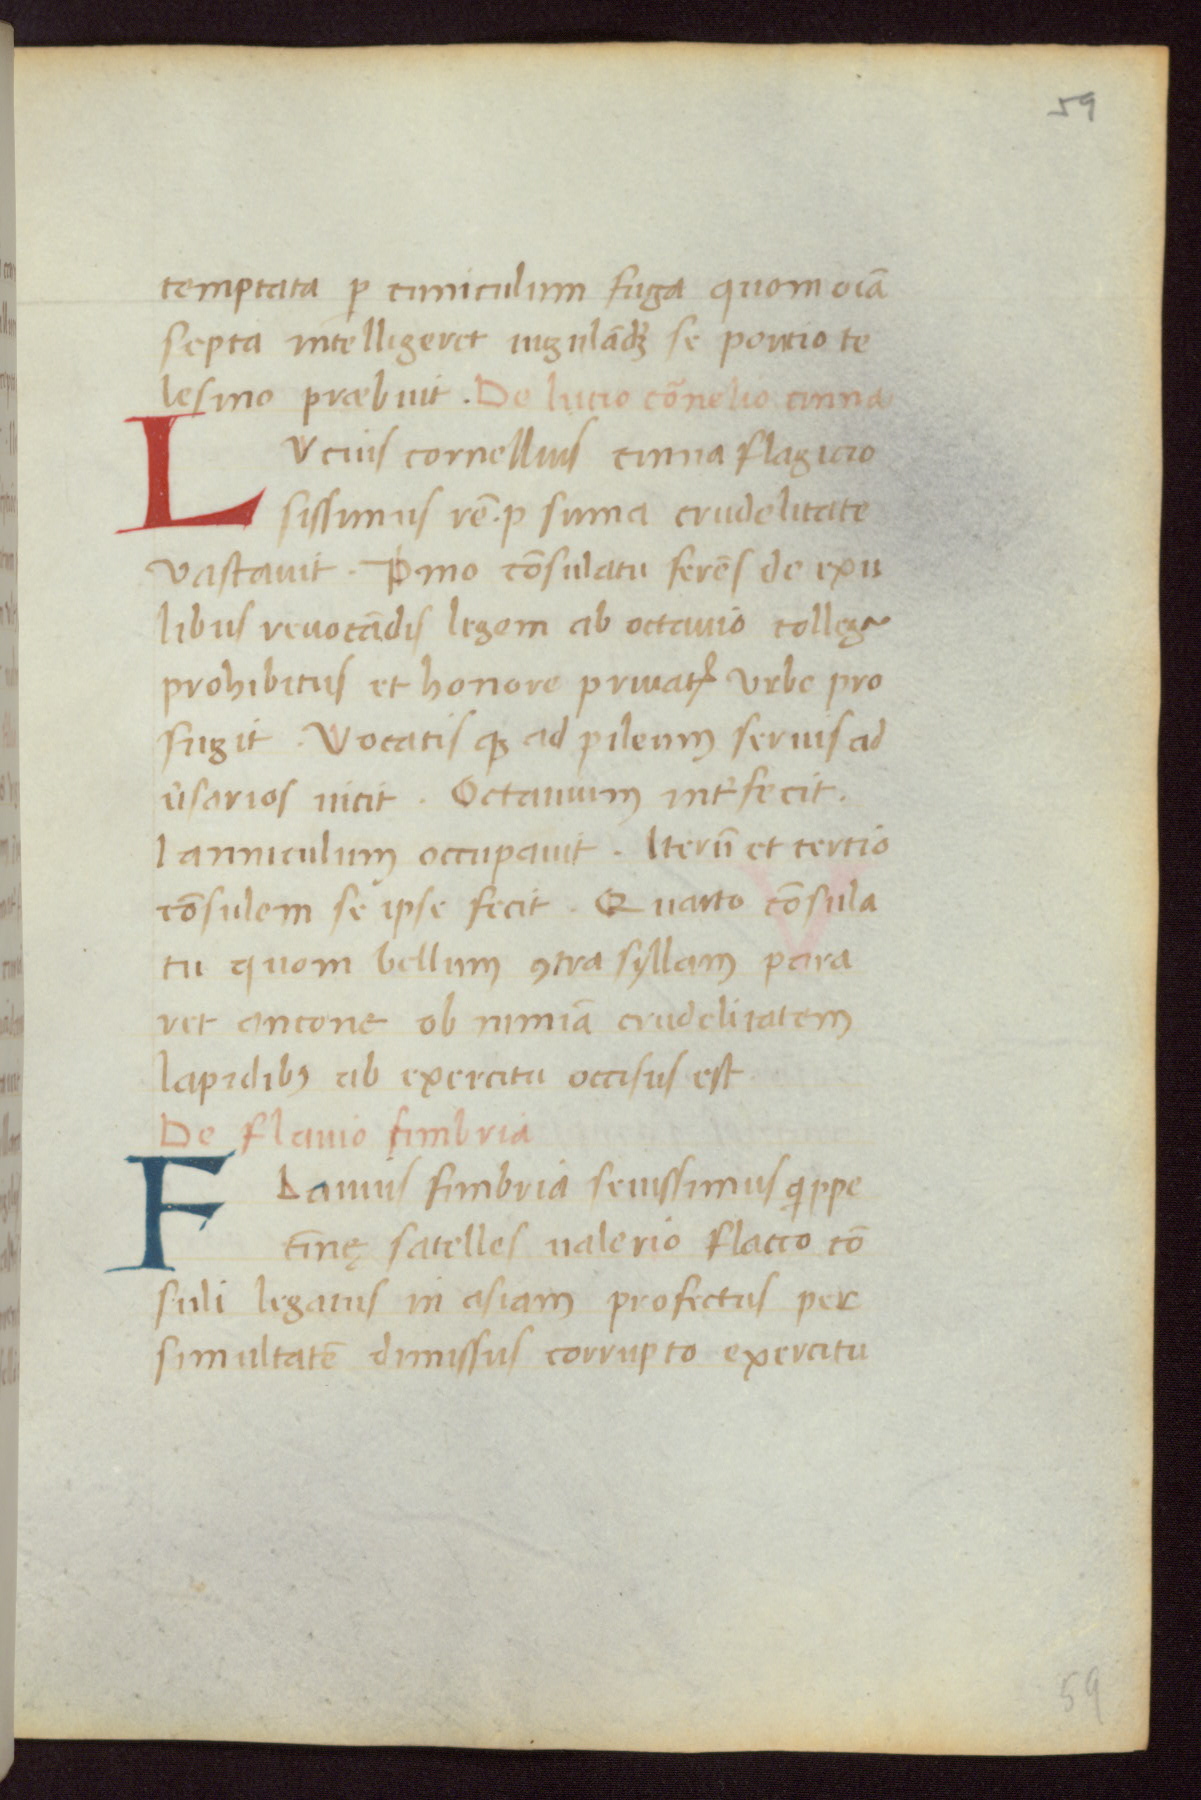 59
temptata ꝑ cuniculum fuga quom oı̄a
septa intelligeret iugulādꝫ se pontio te
lesino præbuit . De lucio cōrnelio cinna
LVcius cornellius cinna flagicio
sissimus rē.p suma crudelitate
vastauit . Pmo cōsulatu ferēs de exu
libus reuocādis legem ab octauio collega
prohibitus et honore priuatꝰ vrbe pro
fugit . Vocatisqꝫ ad pileum seruis ad
ūsarios uicit . Octauium int̄fecit .
Ianniculum occupauit . Iterū et tertio
cōsulem se ipse fecit . Quarto cōsula
tu quom bellum ꝯtra syllam para
ret ancone ob nimiā crudelitatem
lapidibꝫ ab exercitu occisus est
De flauio fimbria
FLauius fimbria seuissimus qippe
cīnę satelles ualerio flacco cō
suli legatus in asiam profectus per
simultatē dimissus corrupto exercitu
59